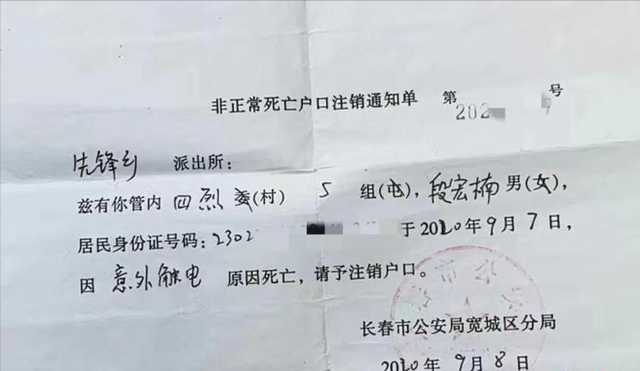 非正常死亡户口注销通知单 第202 号
先锋乡 派出所：
兹有你管内 四烈委(村) 5 组(屯)，段宏楠男(女)，
居民身份证号码：2302 于2020年9月7日，
因 意外触电 原因死亡，请予注销户口。
长春市公安局宽城区分局
2020年9月8日